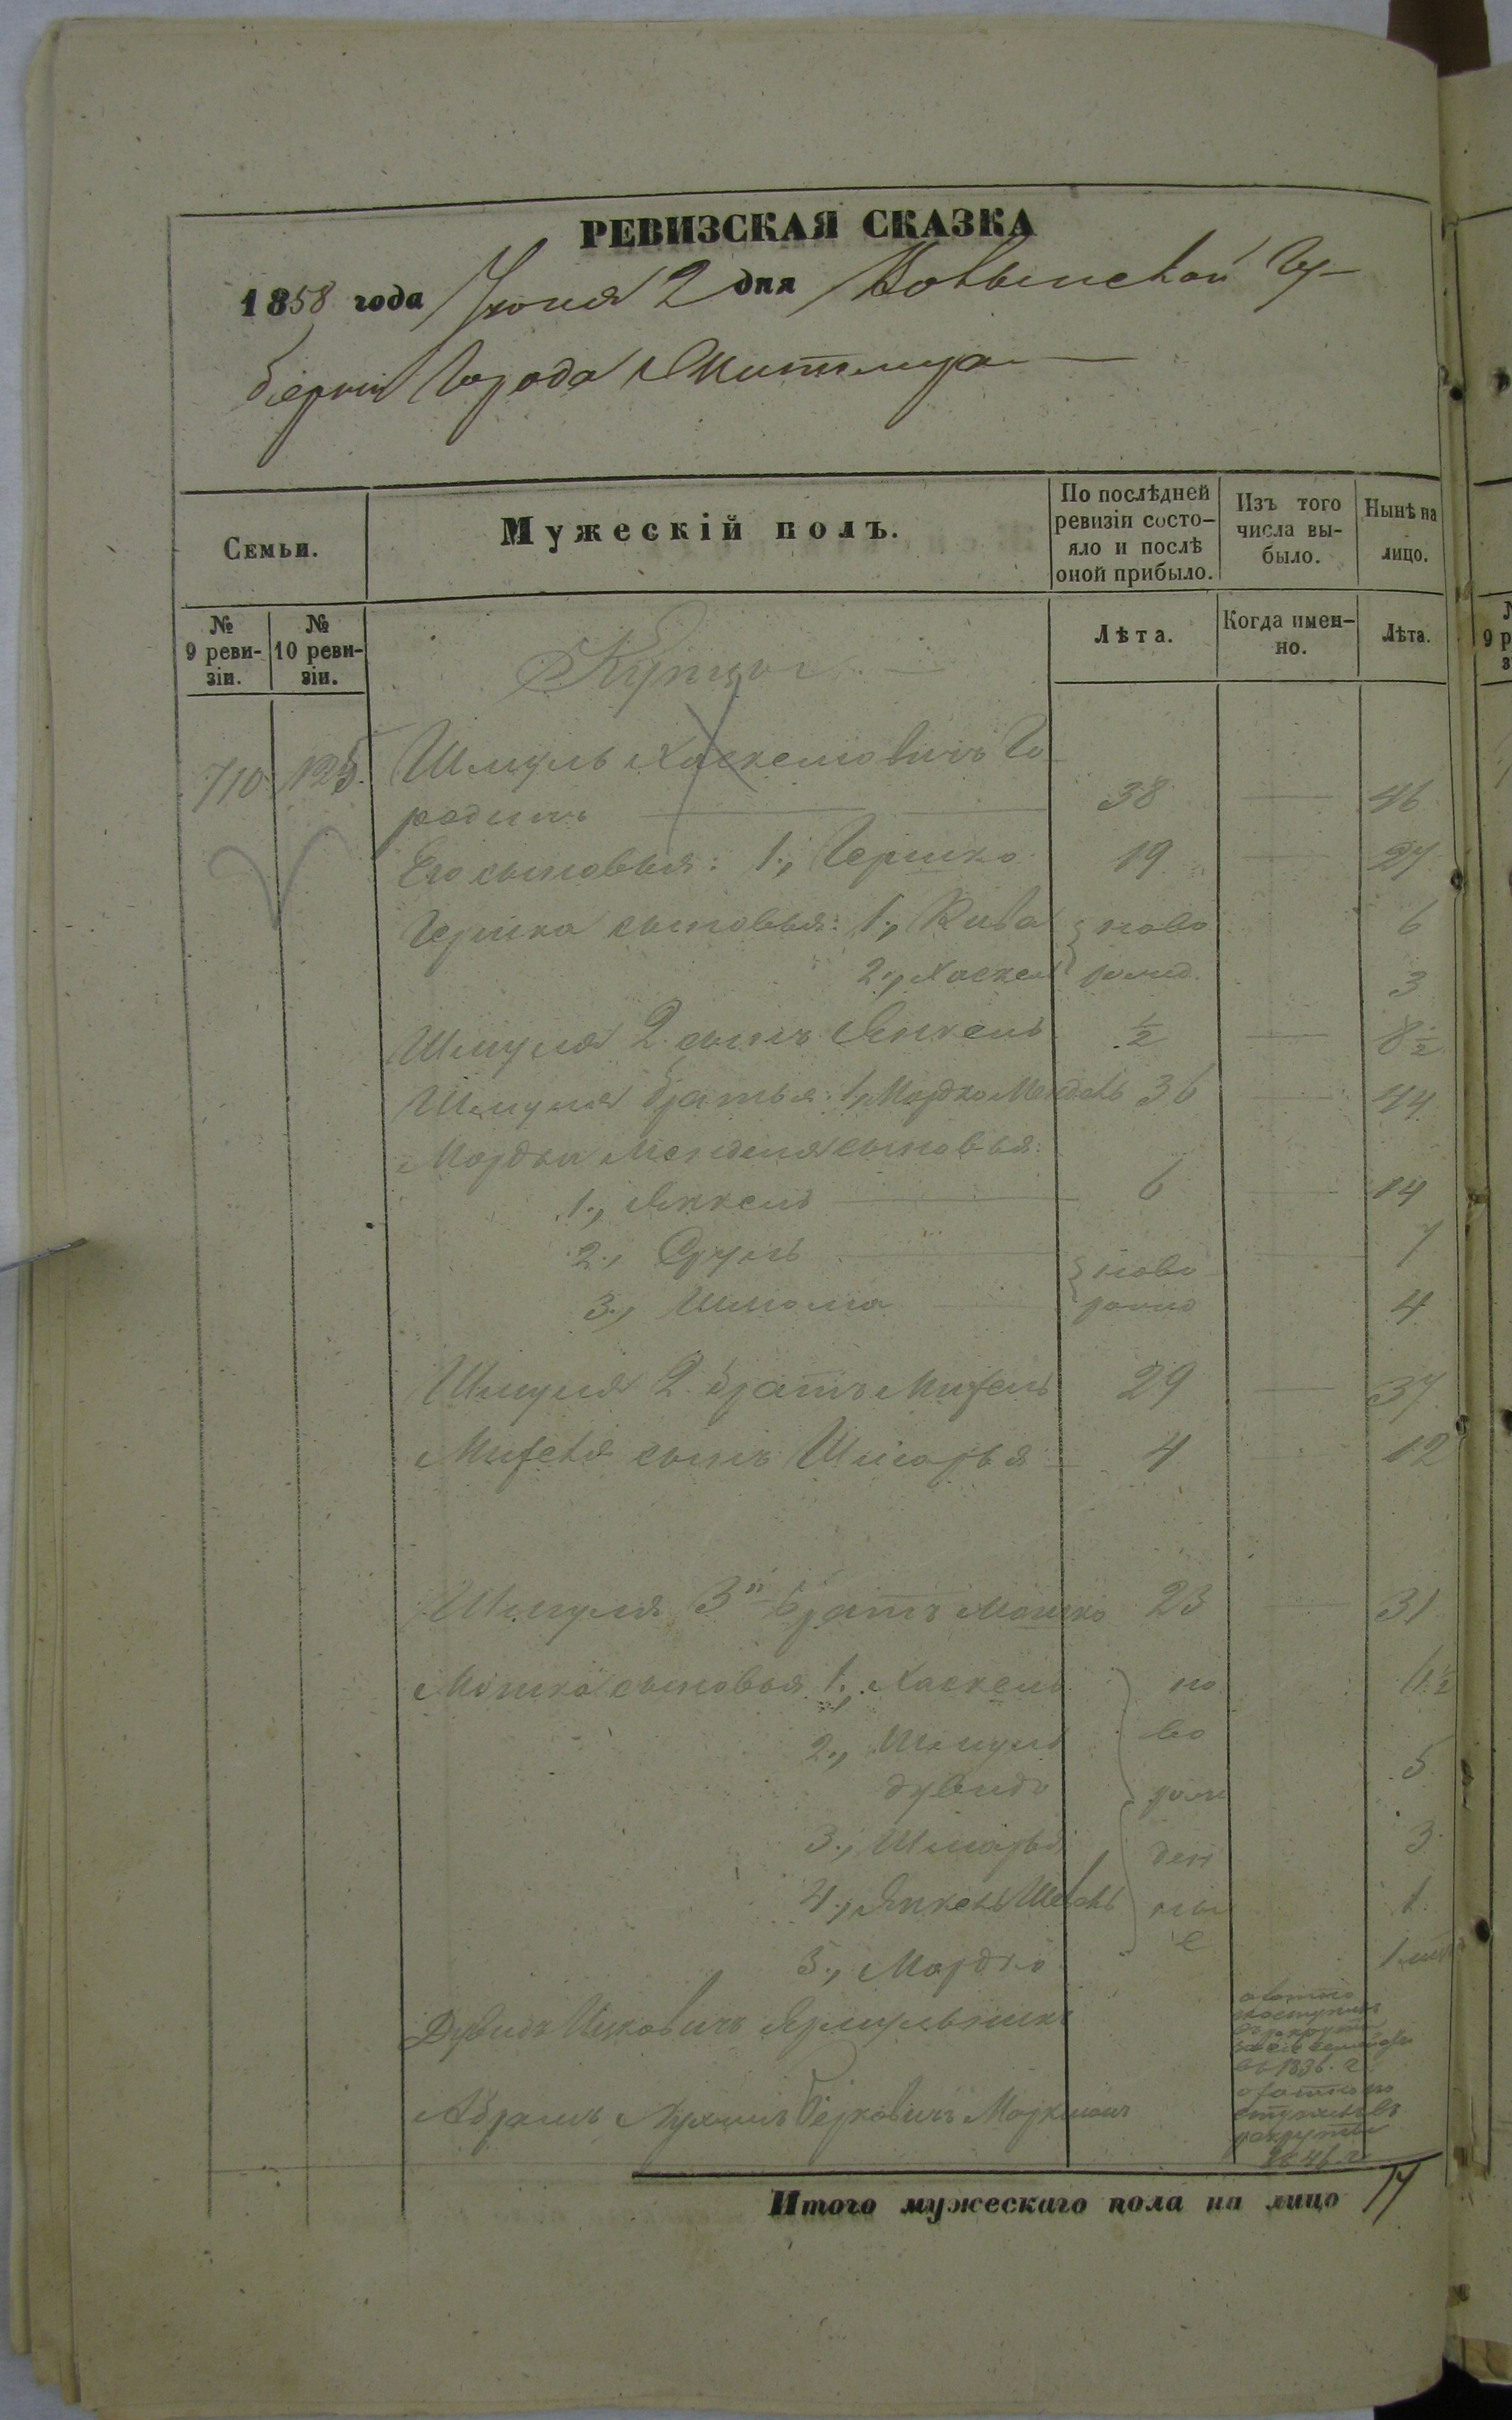 РЕВИЗСКАЯ СКАЗКА
1858 года Іюня 2 дня Волынской Гу-
берніи Города Житомира
Семьи.
Мужескій полъ.
По послѣдней ревизіи состо-
яло и послѣ оной прибыло.
Изъ того числа вы-
было.
Нынѣ на лицо.
№ 9 реви-
зіи.
№ 10 реви-
зіи.
Лѣта.
Когда имен-
но.
Лѣта.
Купцы
710 125. Шмуль Хаскелювичъ Го-
родин 38 46
Его сыновья: 1., Гершко 19 27
Гершка сыновья: 1., Кива ново 6
2., Хаскель рожд. 3
Шмуля 2 сынъ Янкель ½ 8½
Шмуля братья: 1, Мордко Мендель 36 44
Мордки Менделя сыновья:
1., Янкель 6 14
2., Сруль ново 7
3., Шлома рожд 4
Шмуля 2 братъ Мизель 29 37
Мизеля сынъ Шмарья 4 12
Шмуля 3й братъ Мошко 23 31
Мошка сыновья 1., Хаскель но 6½
2., Шмуль во
Дувидъ рож 5
3., Шмарья ден 3
4., Янкель Шевель ны 1
5., Мордко е 1
Дувидъ Ицковичъ
охотно
поступилъ
въ рекруты
въ 1836. г.
Абрамъ Берковичъ
охотно по
ступилъ въ
рекруты
1846. г.
Итого мужескаго пола на лицо 17